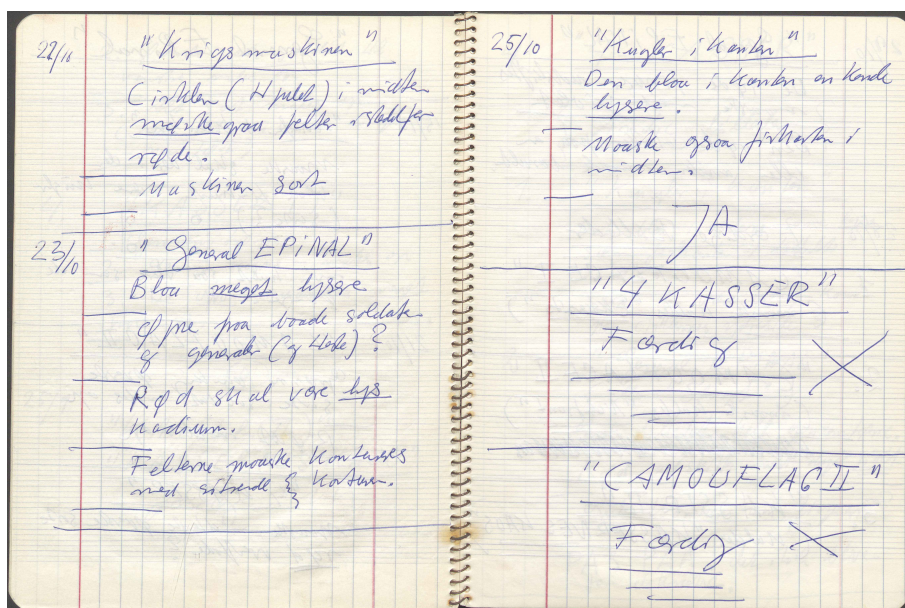 22/10 "Krigsmaskinen"
Cirklen (Hjulet) i midten
mørke graa felter istedetfor
røde.
Maskinen sort
23/10 "General EPiNAL"
Blaa meget lysere
Øjne paa baade soldater
og generaler (og Heste)?
Rød skal være lys
Kadium.
Felterne maaske Kontureres
med sitrende Konturer.
25/10 "Kugler i Kanten"
Den blaa i Kanten en Kende
lysere.
Maaske ogsaa firkanten i
midten.
JA
"4 KASSER"
Færdig
"CAMOUFLAG II"
Færdig